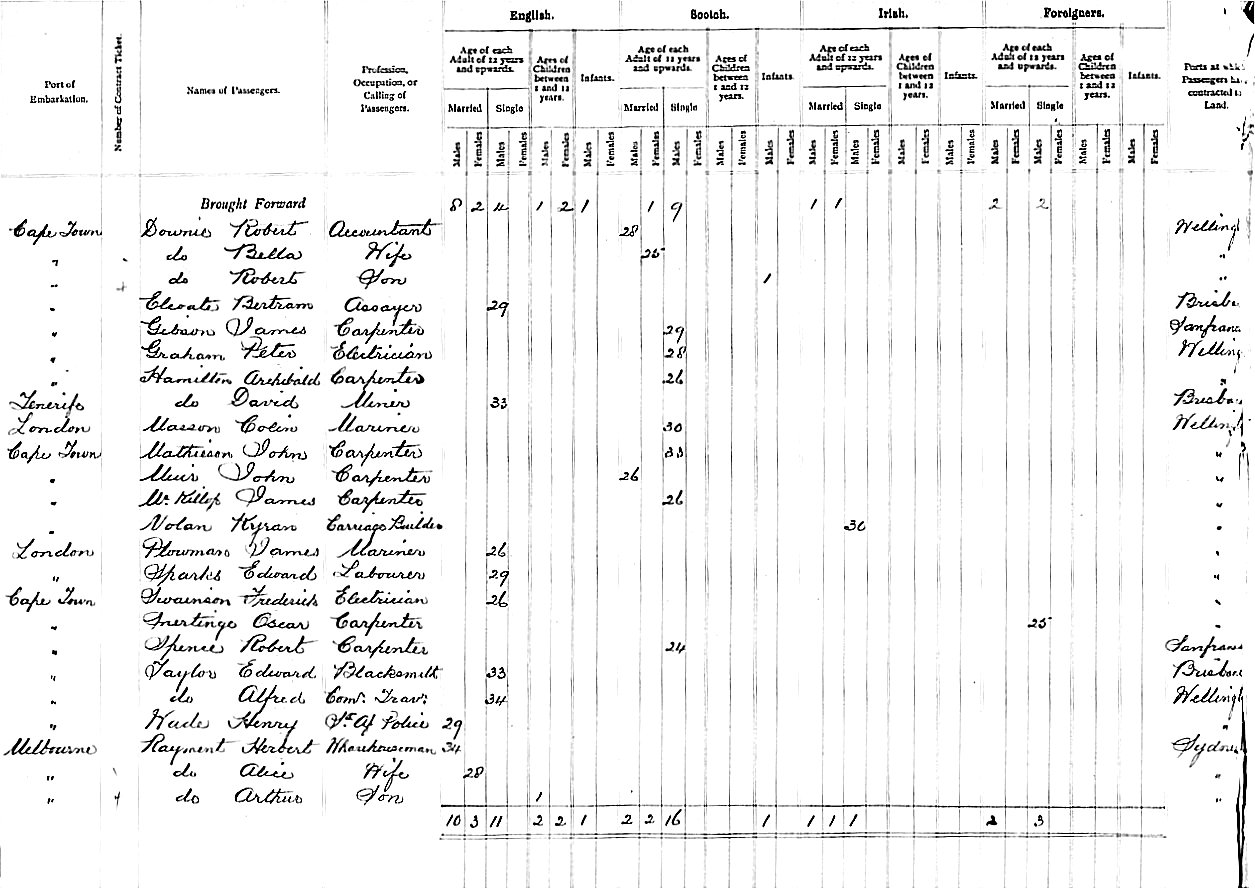 English. Scotch. Irish. Foreigners.
Port of Embarkation. Number of Contract Ticket. Names of Passengers. Profession, Occupation, or Calling of Passengers. Age of each Adult of 12 years and upwards. Ages of Children between 1 and 12 years. Infants. Age of each Adult of 12 years and upwards. Ages of Children between 1 and 12 years. Infants. Age of each Adult of 12 years and upwards. Ages of Children between 1 and 12 years. Infants. Age of each Adult of 12 years and upwards. Ages of Children between 1 and 12 years. Infants. Ports at Passengers contracted Land.
Married Single Married Single Married Single Married Single
Males Females Males Females Males Females Males Females Males Females Males Females Males Females Males Females Males Females Males Females Males Females Males Females Males Females Males Females Males Females Males Females
Brought Forward 8 2 4 1 2 1 1 9 1 1 2 2
Cape Town Downie Robert Accountant 28 Welling
" do Bella Wife 25 "
" do Robert Son 1 "
" Bertram Assayer 29 Brisba
" Gibson James Carpenter 29 Sanfranc
" Graham Peter Electrician 28 Welling
" Hamilton Archibald Carpenter 26 "
Tenerife do David Miner 33 Brisba
London Masson Colin Mariner 30 Welling
Cape Town Mathieson John Carpenter 33 "
" Muir John Carpenter 26 "
" McKillop James Carpenter 26 "
" Nolan Kyran Carriage Builder 30 "
London Plowman James Mariner 26 "
" Sparks Edward Labourer 29 "
Cape Town Swainson Frederick Electrician 26 "
" Oscar Carpenter 25 "
" Spence Robert Carpenter 24 Sanfran
" Taylor Edward Blacksmith 33 Brisban
" do Alfred Com. Trav. 34 Welling
" Wade Henry Police 29 "
Melbourne Rayment Herbert Wharehouseman 34 Sydne
" do Alice Wife 28 "
" do Arthur Son 1 "
10 3 11 2 2 1 2 2 16 1 1 1 1 2 3